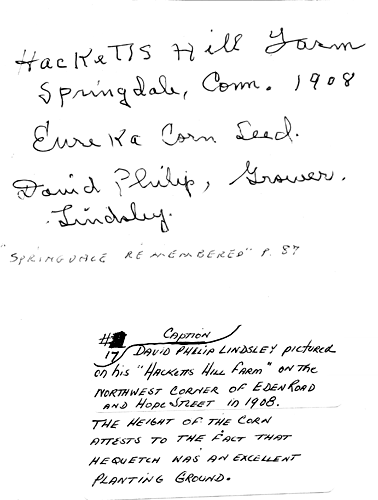 Hacketts Hill Farm
Springdale, Conn. 1908
Eureka Corn Seed.
David Philip, Grower.
Lindsley.
"SPRINGDALE REMEMBERED" P. 57
# Caption
17 DAVID PHELIA LINDSLEY pictured
on his "HACKETTS HILL FARM" on the
NORTHWEST CORNER OF EDEN ROAD
AND HOPE STREET in 1908.
THE HEIGHT OF THE CORN
ATTESTS TO THE FACT THAT
HEQUETCH WAS AN EXCELLENT
PLANTING GROUND.